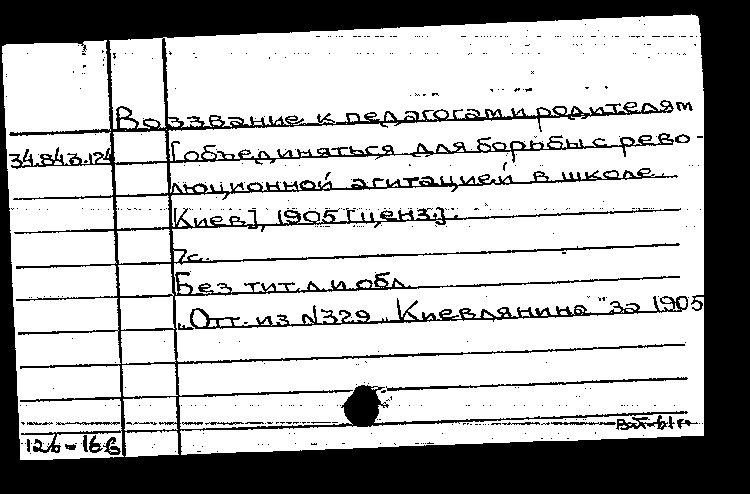 Воззвание к педагогам и родителям
34.84.3.124 [объединяться для борьбы с рево-
люционной агитацией в школе.
Киев], 1905 [ценз.].
7с.
Без тит.л. и обл.
"Отт. из N329 "Киевлянина" за 1905
126-16в